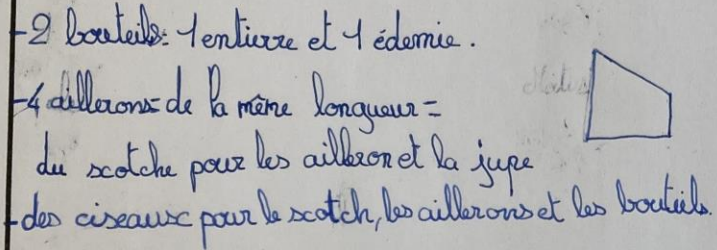 -2 bouteils: 1 entierre et 1 édemie.
-4 aillerons= de la même longueur=
du scotche pour les ailleron et la jupe
-des ciseausc pour le scotch, les aillerons et les bouteils.